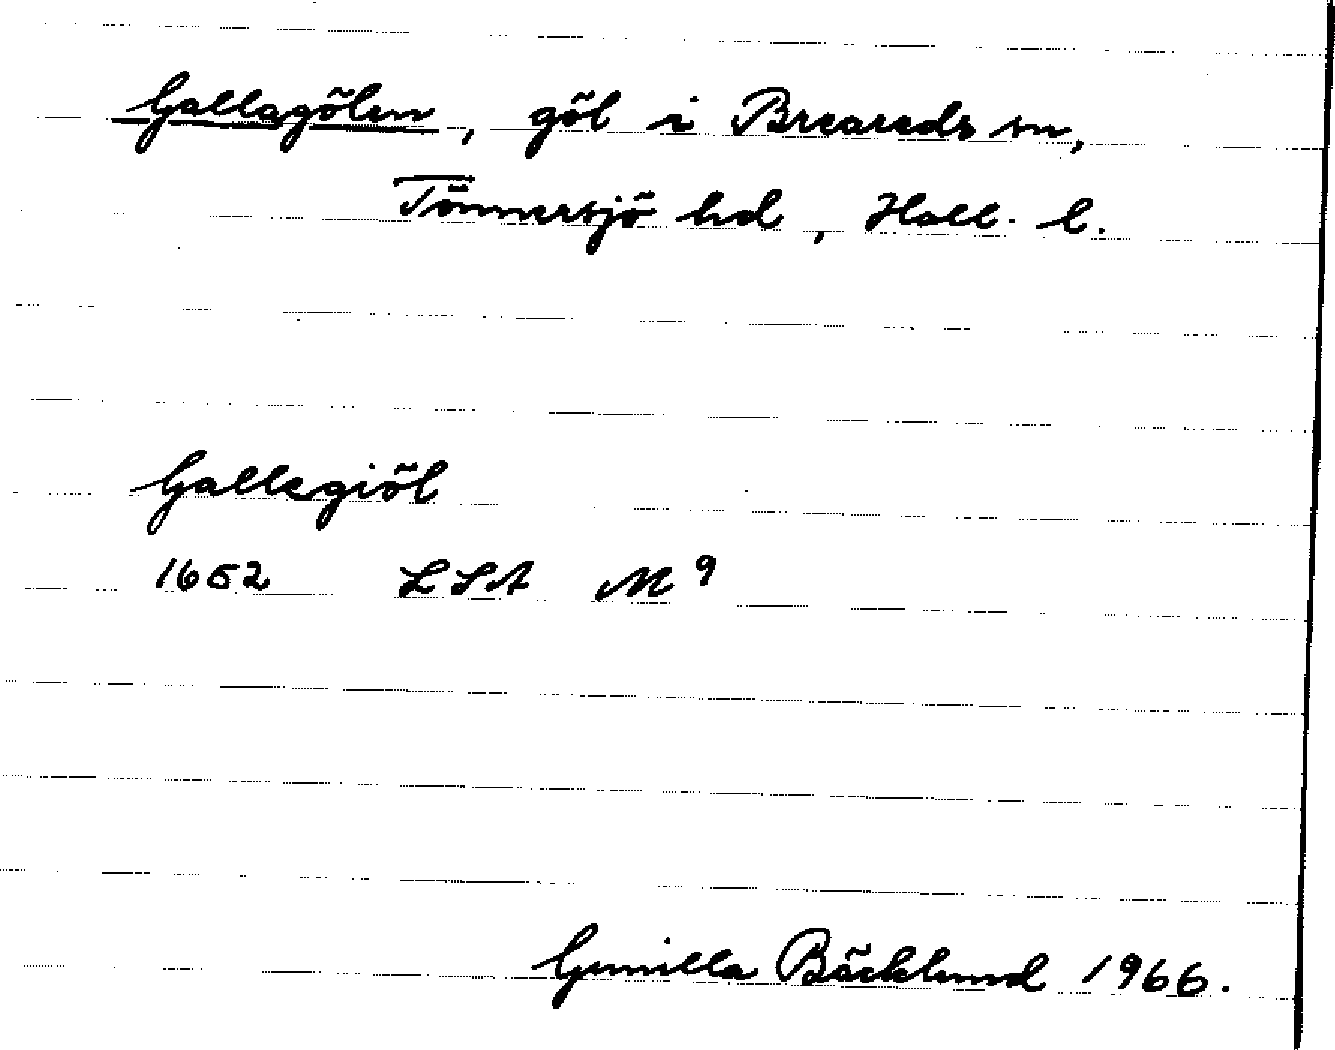 Gallagölen, göl i Breareds sn,
Tönnersjö hd, Hall. l.
Gallegiöl
1652 LSA M 9
Gunilla Bäcklund 1966.